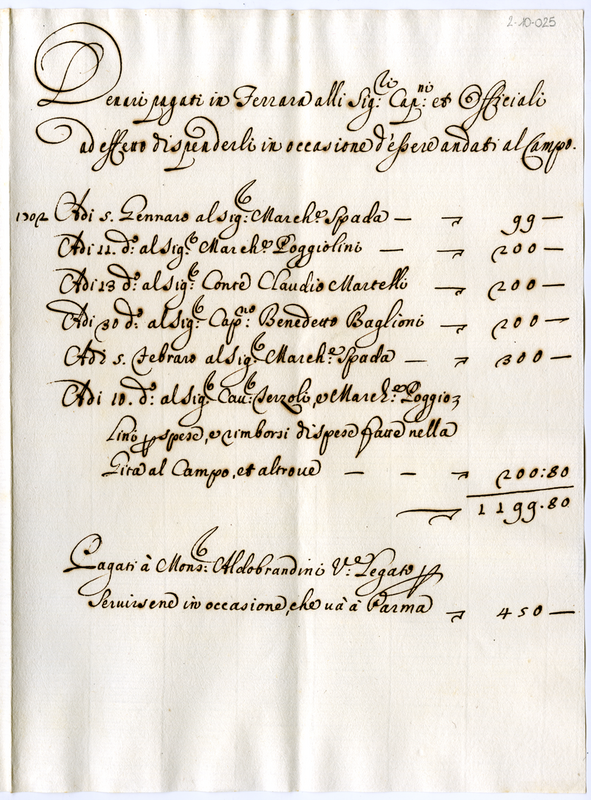 2-10-025
Denari pagati in Ferrara alli Sig:ri Cap:ni et Officiali
ad effetto di spenderli in occasione d'essere andati al Campo.
1702 Adi 5. Gennaro al Sig:r March:e Spada — 99 —
Adi 11. d:o al Sig:r March:e Poggiolini — 200 —
Adi 13 d:o al Sig:r Conte Claudio Martelli 200 —
Adi 30 d:o al Sig:r Cap:no Benedetto Baglioni 200 —
Adi 5. Febraro al Sig:r March:e Spada — 300 —
Adi 10. d:o al Sig:r Cau:r Serzoli, e March:e Poggio,
lini p spese, e rimborsi di spese fatte nella
Gita al Campo, et altroue — — 200:80
1199.80
Pagati à Mons:r Aldobrandini V:e Legato p
Seruirsene in occasione, che uà à Parma 450 —